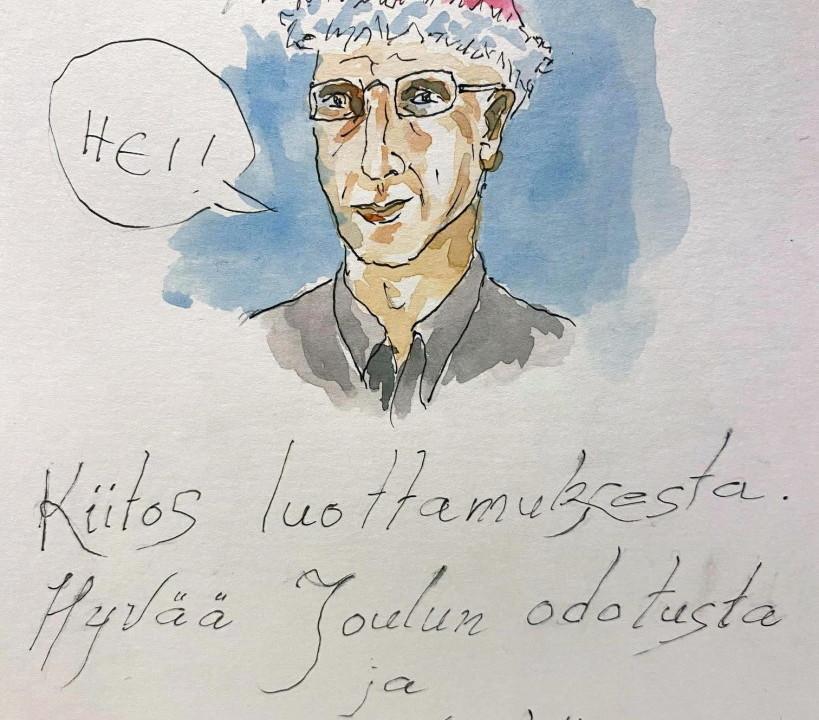 HEI!
Kiitos luottamuksesta.
Hyvää Joulun odotusta
ja